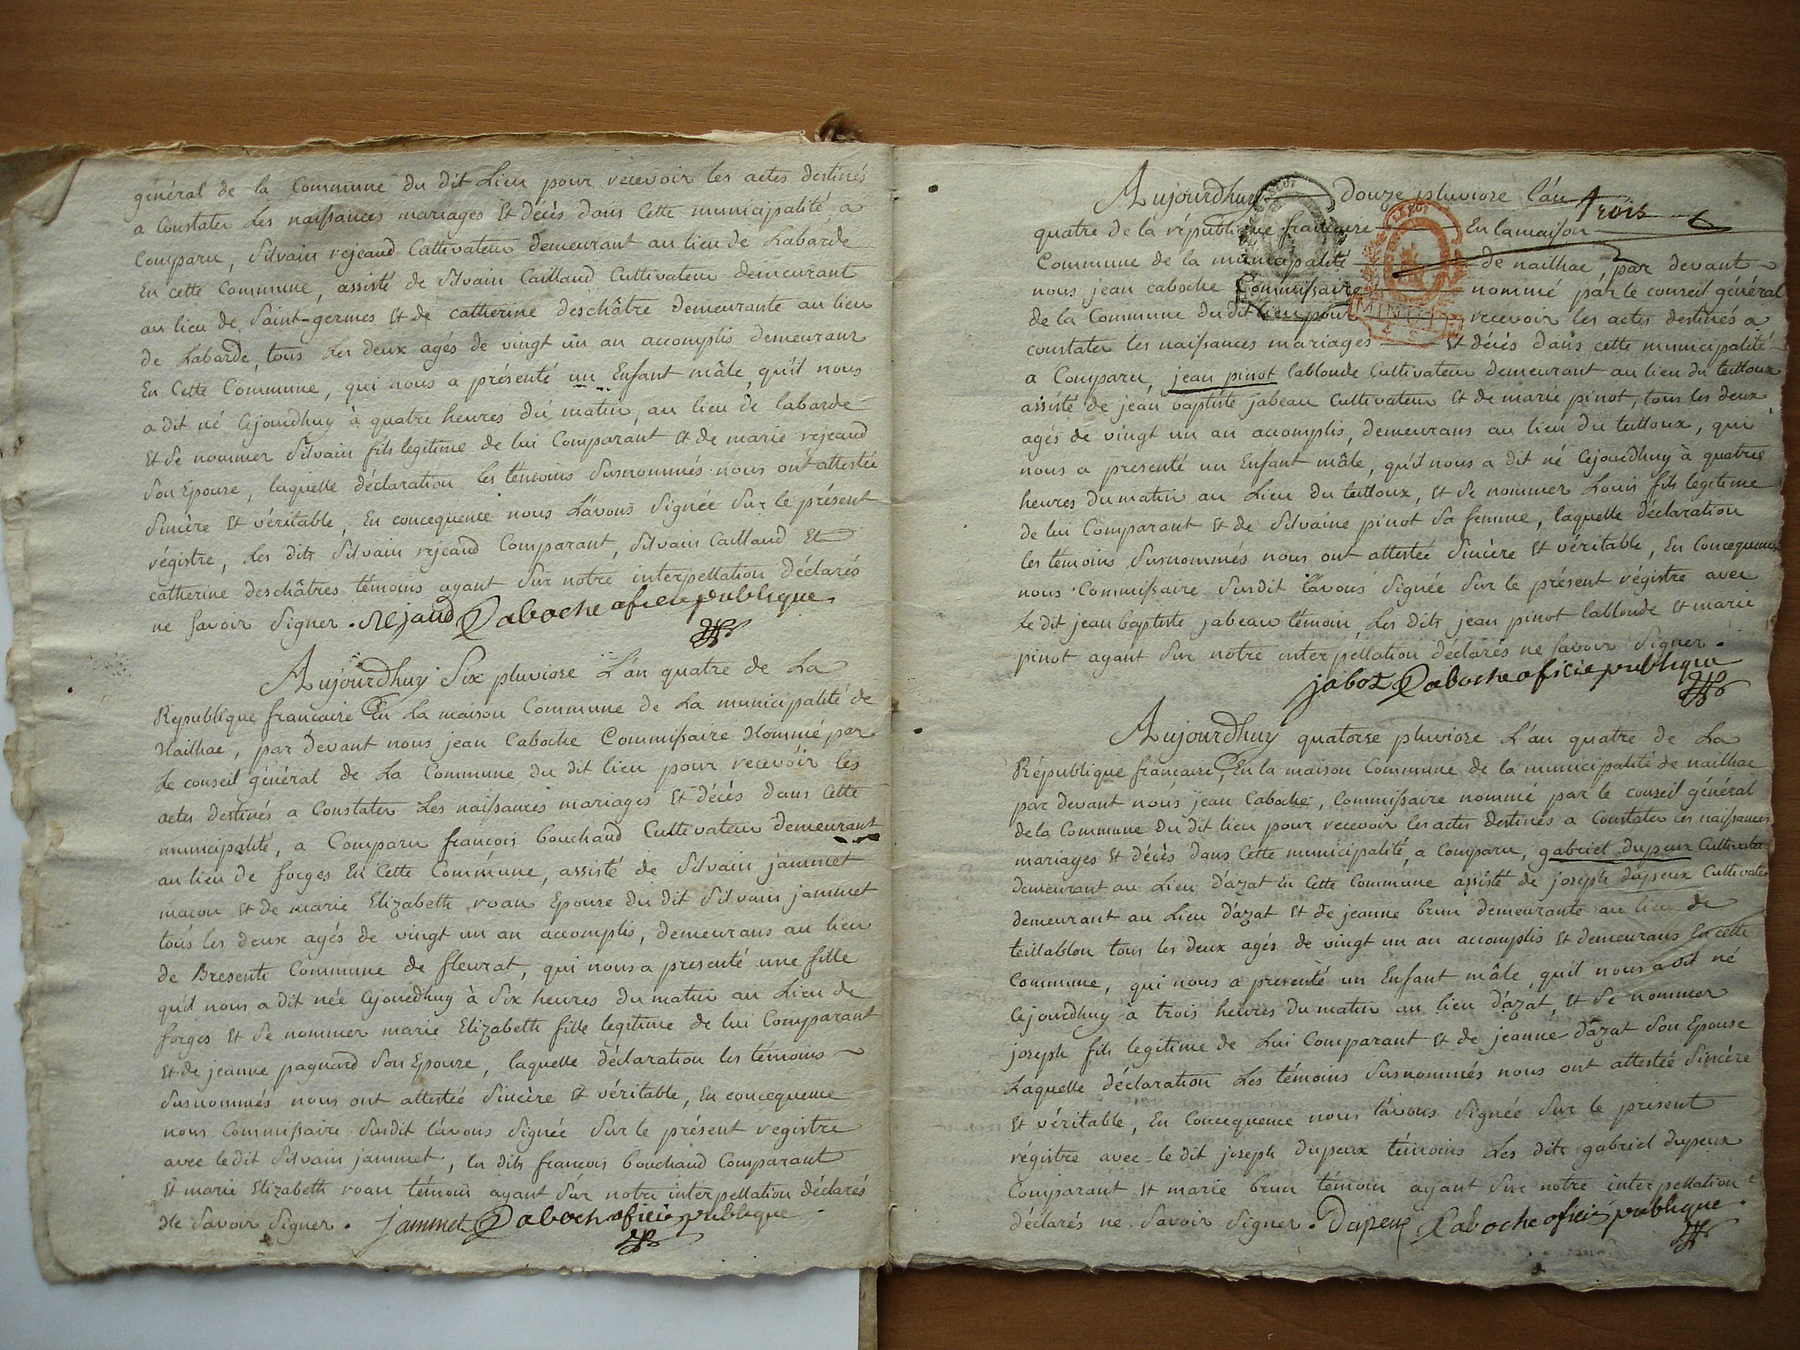 général de la Commune du dit Lieu pour recevoir les actes destinés
a Constater Les naissances mariages Et décès dans Cette municipalité, a
Comparu, Silvain rejeaud Cultivateur demeurant au lieu de Labarde
En cette Commune, assisté de Silvain Caillaud Cultivateur demeurant
au lieu de Saint-germes Et de catherine deschâtre demeurante au lieu
de Labarde, tous Les deux agés de vingt un an accomplis demeurans
En Cette Commune, qui nous a présenté un Enfant mâle, qu'il nous
a dit né Cejourdhuy à quatre heures du matin, au lieu de labarde
Et Se nommer Silvain fils legitime de lui Comparant Et de marie rejeaud
Son Epouse, laquelle déclaration les témoins Susnommés nous ont attestée
Sincère Et véritable, En concequence nous L'avons Signée Sur le présent
régistre, Les dits Silvain rejeaud Comparant, Silvain Caillaud Et
catherine deschâtres témoins ayant Sur notre interpellation déclarés
ne Savoir Signer. Rejaud Caboche oficie publique
Aujourdhuy Six pluviose L'an quatre de La
République francaire En la maison Commune de La municipalité de
Nailhac, par devant nous jean Caboche Commissaire Nommé par
Le conseil général de La Commune du dit lieu pour recevoir les
actes destinés a Constater Les naissances mariages Et décès dans Cette
municipalité, a Comparu françois bouchaud Cultivateur demeurant
au lieu de forges En Cette Commune, assisté de Silvain jammet
macon Et de marie Elizabeth roan Epouse du dit Silvain jammet
tous les deux agés de vingt un an accomplis, demeurans au lieu
de Bresenti Commune de fleurat, qui nous a présenté une fille
qu'il nous a dit née Cejourdhuy à Six heures du matin au Lieu de
forges Et Se nommer marie Elizabeth fille legitime de lui Comparant
Et de jeanne pagnard Son Epouse, laquelle déclaration les témoins
Susnommés nous ont attestée Sincère Et véritable, En concequence
nous Commissaire Susdit L'avons Signée Sur le présent régistre
avec le dit Silvain jammet, les dits françois bouchaud Comparant
Et marie Elizabeth roan témoin ayant Sur notre interpellation déclarés
Ne Savoir Signer. jammet Caboche oficie publique
Aujourdhuy douze pluviose l'an trois
quatre de la république francaire En la maison
Commune de la municipalité de nailhac, par devant
nous jean caboche Commissaire nommé par le conseil général
de la Commune du dit lieu pour recevoir les actes destinés a
constater les naissances mariages Et décès dans cette municipalité
a Comparu, jean pinot lablonde Cultivateur demeurant au lieu du teilloux
assisté de jean baptiste jabeau Cultivateur Et de marie pinot, tous les deux
agés de vingt un an accomplis, demeurans au lieu du teilloux, qui
nous a presenté un Enfant mâle, qu'il nous a dit né Cejourdhuy à quatre
heures du matin au Lieu du teilloux, Et Se nommer Louis fils legitime
de lui Comparant Et de Silvaine pinot Sa femme, laquelle déclaration
les témoins Susnommés nous ont attestée Sincère Et véritable, En Concequence
nous Commissaire Susdit l'avons Signée Sur le présent régistre avec
Le dit jean baptiste jabeau témoin, Les dits jean pinot lablonde Et marie
pinot ayant Sur notre interpellation déclarés ne Savoir Signer.
jabot Caboche oficie publique
Aujourdhuy quatorze pluviose L'an quatre de La
République francaire, En la maison Commune de la municipalité de nailhac
par devant nous jean Caboche, Commissaire nommé par le conseil général
de la Commune du dit lieu pour recevoir les actes destinés a Constater les naissances
mariages Et décès dans Cette municipalité, a Comparu, gabriel dupeux Cultivateur
demeurant au Lieu d'azat En Cette Commune assisté de joseph dupeux Cultivateur
demeurant au Lieu d'azat Et de jeanne brun demeurante au lieu de
teillablou tous les deux agés de vingt un an accomplis Et demeurans En cette
Commune, qui nous a presenté un Enfant mâle, qu'il nous a dit né
Cejourdhuy à trois heures du matin au lieu d'azat, Et Se nommer
joseph fils legitime de Lui Comparant Et de jeanne d'azat Son Epouse
Laquelle déclaration Les témoins Susnommés nous ont attestée Sincère
Et véritable, En Concequence nous l'avons Signée Sur le present
régistre avec le dit joseph dupeux témoins Les dits gabriel dupeux
Comparant Et marie brun témoin ayant Sur notre interpellation
déclarés ne Savoir Signer. Dupeux Caboche oficié publique